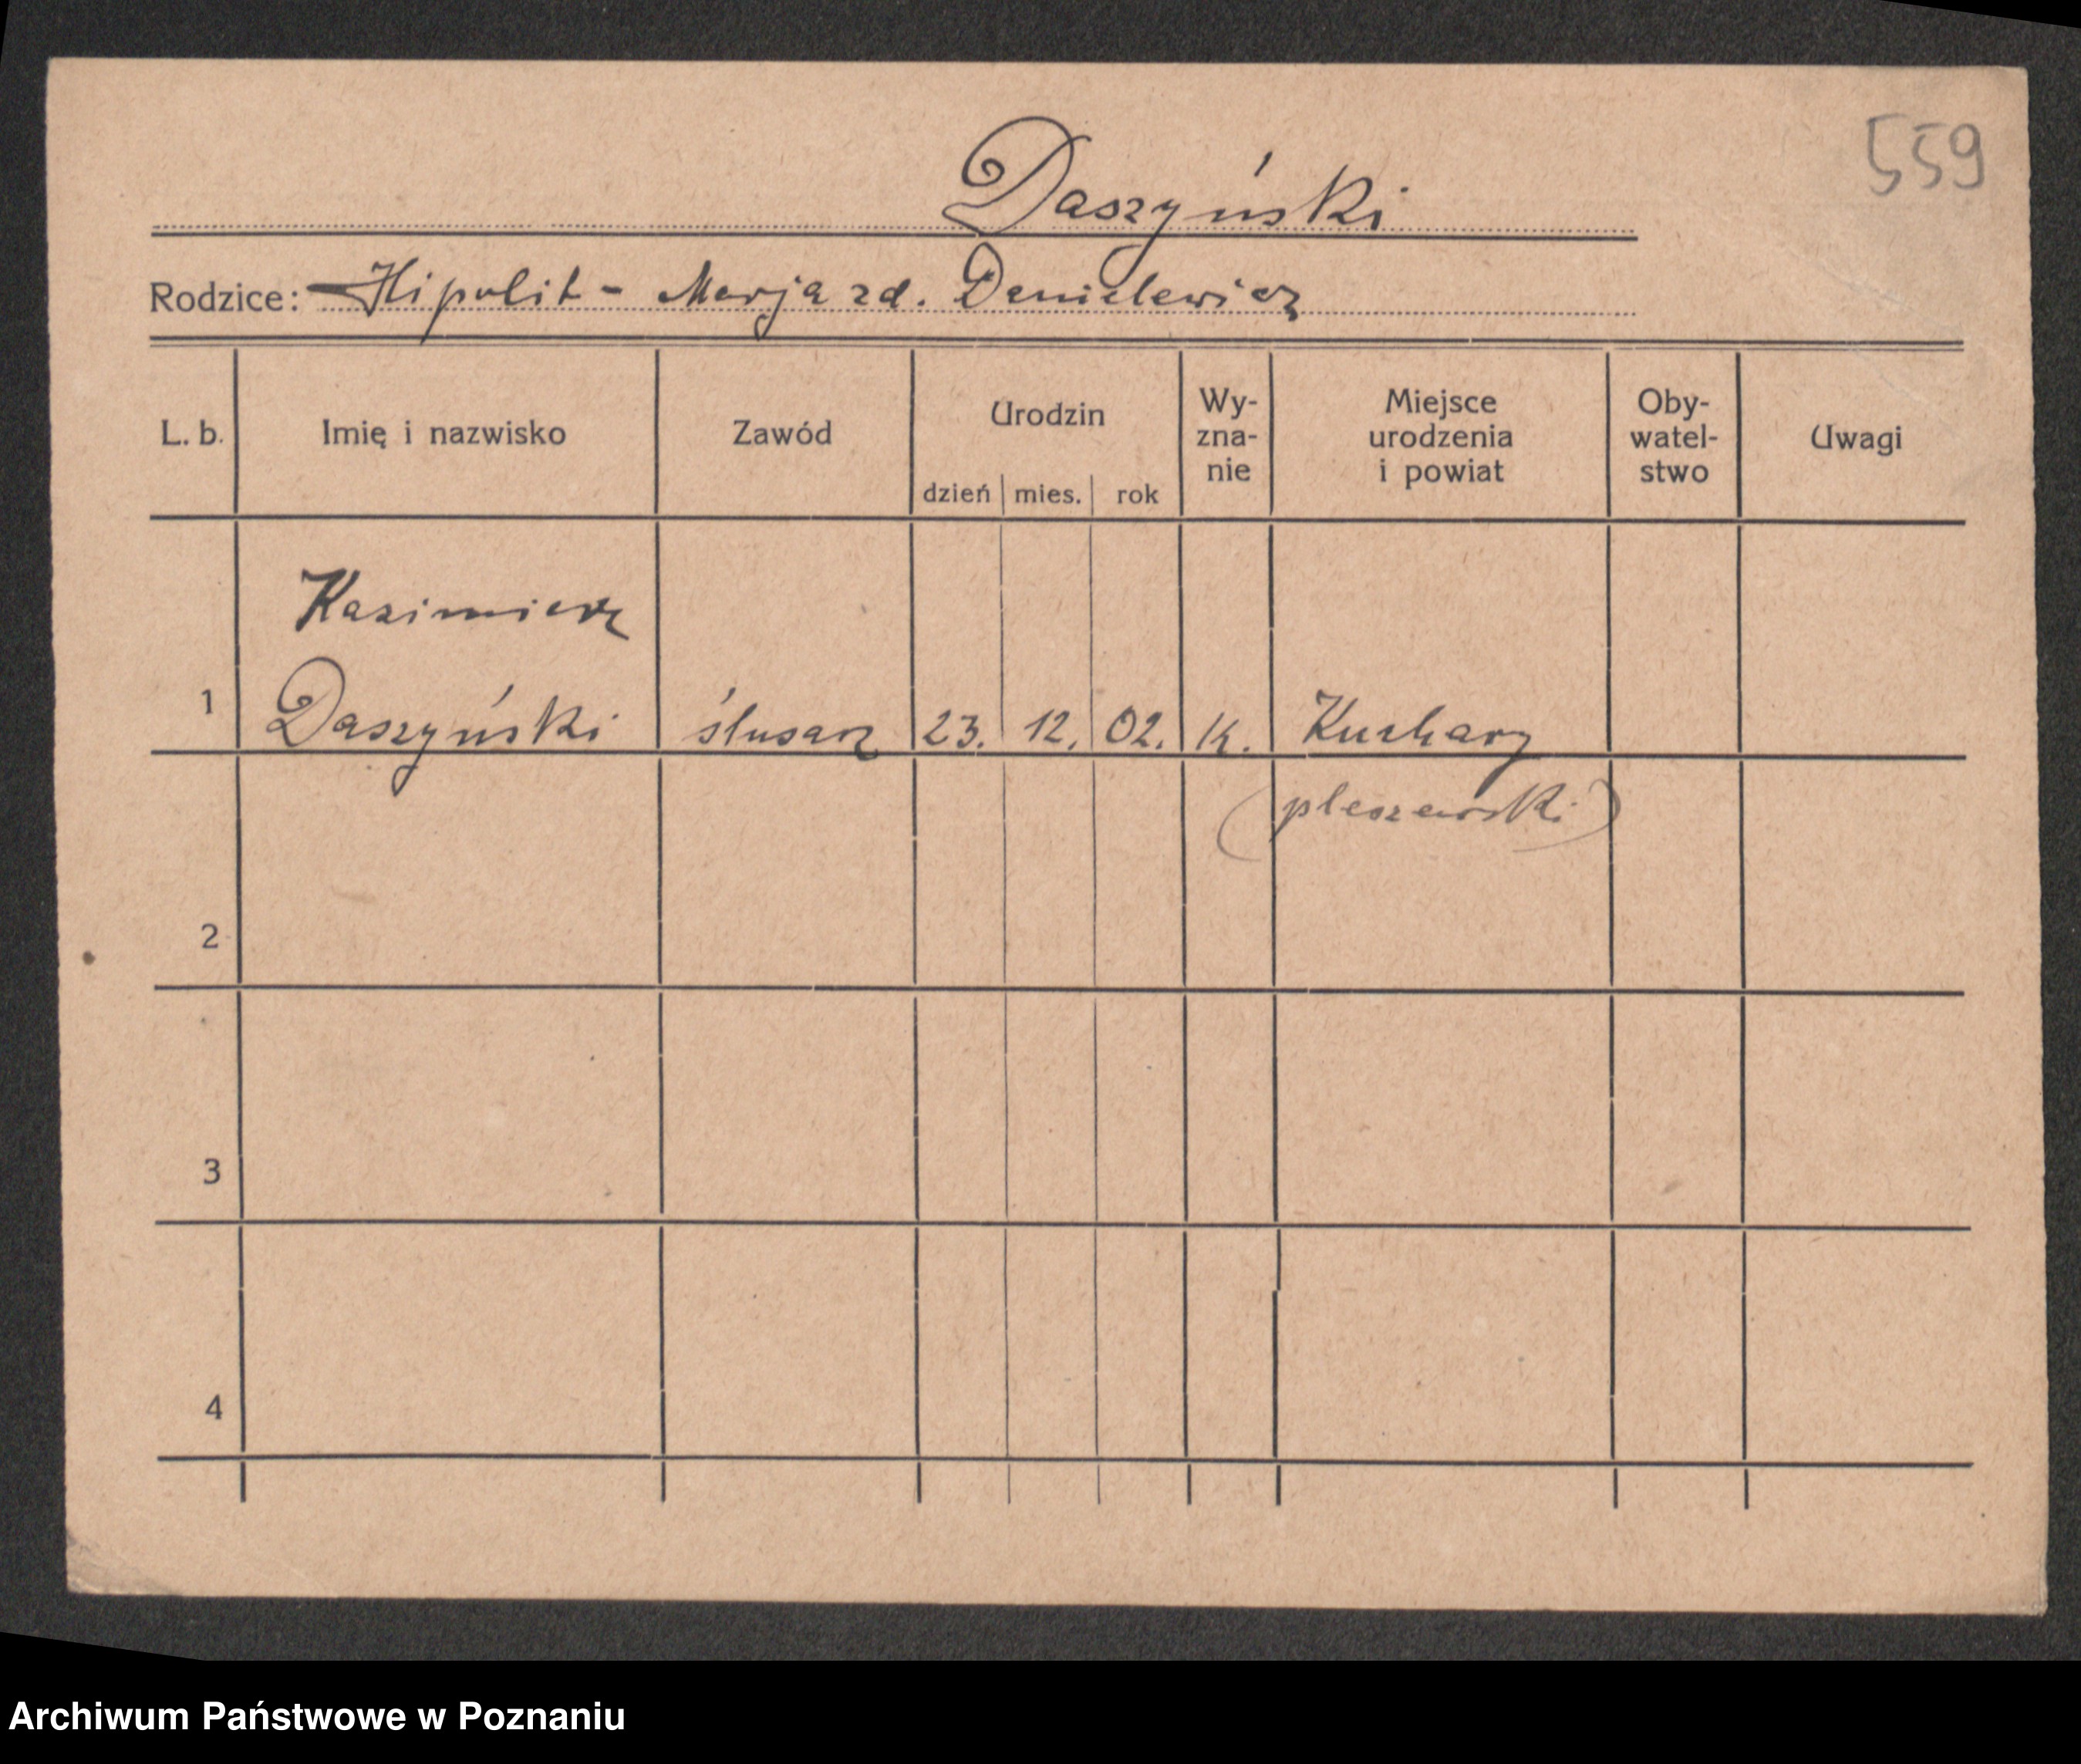 559
Daszyński
Rodzice: Hipolit - Marja zd. Danielewicz
L. b. Imię i nazwisko Zawód Urodzin dzień mies. rok Wy-zna-nie Miejsce urodzenia i powiat Oby-watel-stwo Uwagi
Kazimierz
1 Daszyński ślusarz 23. 12. 02. K. Kuchary
(pleszewski)
2
3
4
Archiwum Państwowe w Poznaniu